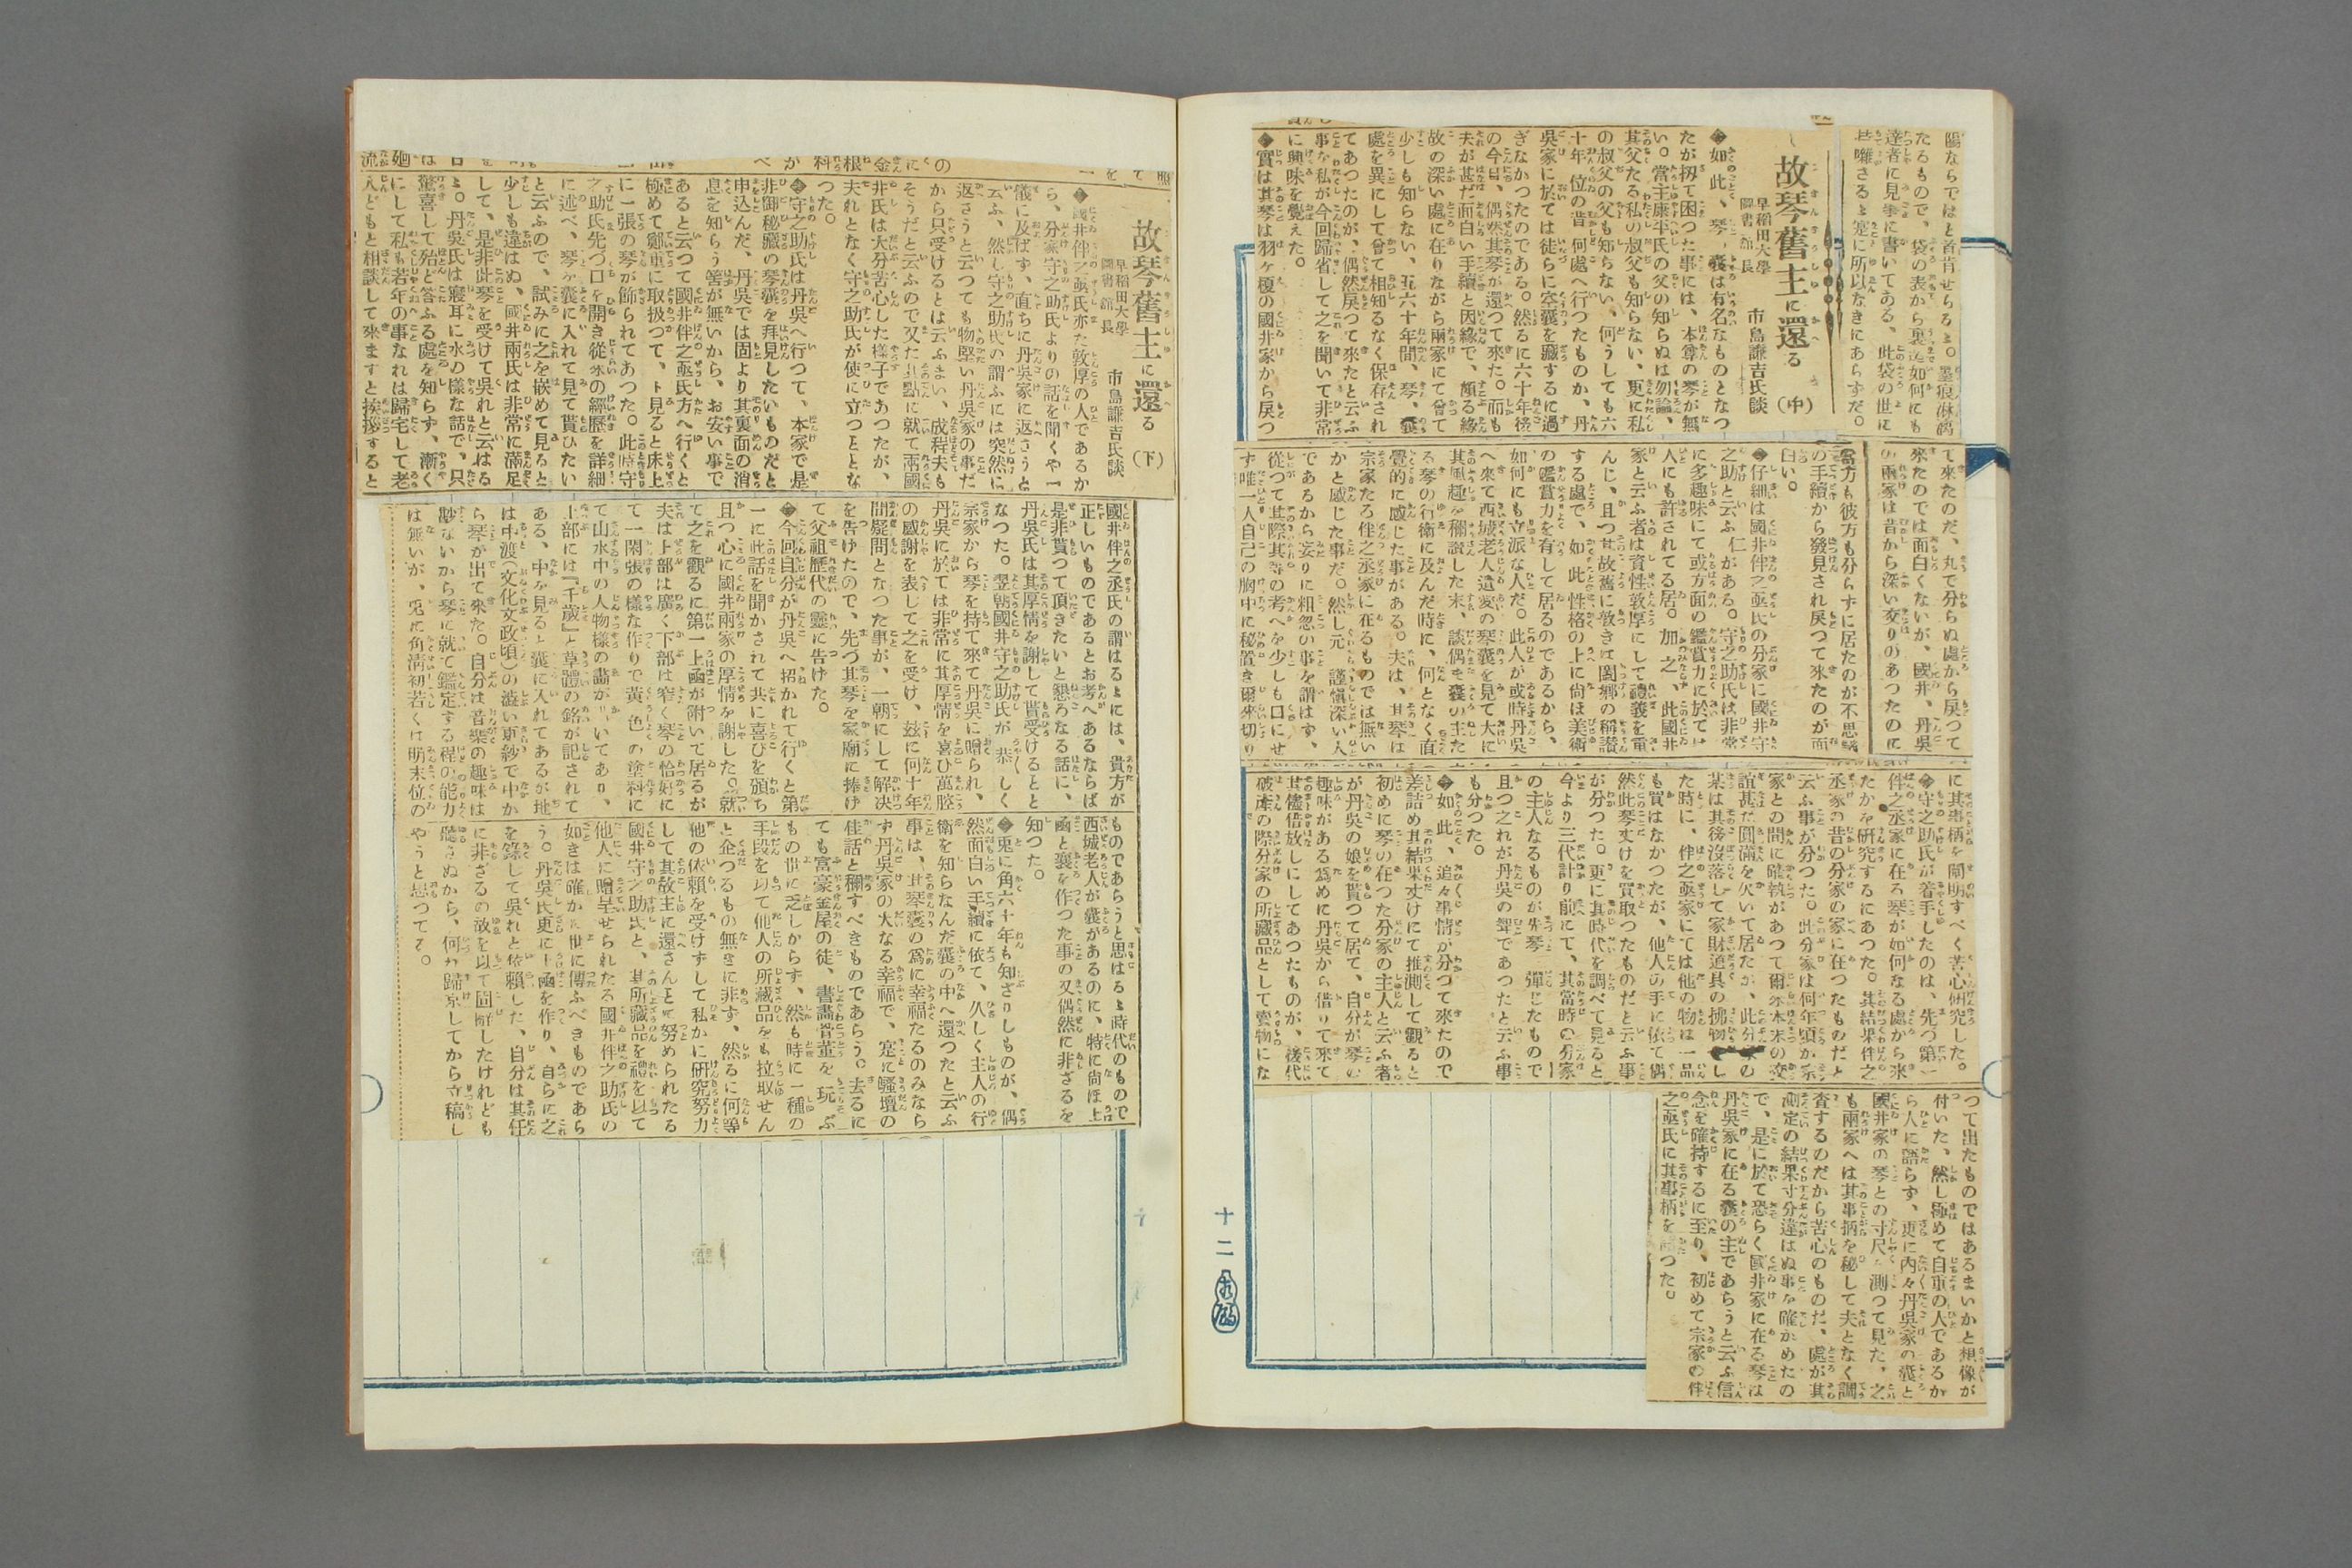 陽ならではと首肯せらるゝ。墨痕淋漓
たるもので、袋の表から裏迄如何にも
達者に見事に書いてある、此袋の世に
持囃さるゝ寔に所以なきにあらずだ。
故琴舊主に還る（中）
早稻田大學
圖書館長
市島謙吉氏談
◆如此、琴嚢は有名なものとなつ
たが扨て困つた事には、本尊の琴が無
い。當主康平氏の父の知らぬは勿論、
其父たる私の叔父も知らない、更に私
の叔父の父も知らない、何うしても六
十年位の昔何處へ行つたものか、丹
呉家に於ては徒らに空嚢を藏するに過
ぎなかつたのである。然るに六十年後
の今日、偶然其琴が還つて來た。而も
夫が甚だ面白い手續と因緣で、頗る緣
故の深い處に在りながら兩家にて曾て
少しも知らない、五六十年間、琴、嚢
處を異にして曾て相知るなく保存され
てあつたのが、偶然戻つて來たと云ふ
事を私が今回歸省して之を聞いて非常
に興味を覺えた。
◆實は其琴は羽ヶ榎の國井家から戻つ
て來たのだ、丸で分らぬ處から戻つて
來たのでは面白くないが、國井、丹呉
の兩家は昔から深い交りのあつたのに
當方も彼方も分らずに居たのが不思議
の手續から發見され戻つて來たのが面
白い。
◆仔細は國井伴之丞氏の分家に國井守
之助と云ふ仁がある。守之助氏は非常
に多趣味にて或方面の鑑賞力に於ては
人にも許されてる居。加之、此國井
家と云ふ者は資性敦厚にして禮義を重
んじ、且つ其故舊に敦きは閭郷の稱讃
する處で、如此性格の上に尚ほ美術
の鑑賞力を有して居るのであるから、
如何にも立派な人だ。此人が或時丹呉
へ來て西城老人遺愛の琴嚢を見て大に
其風趣を稱讃した末、談偶を嚢の主た
る琴の行衛に及んだ時に、何となく直
覺的に感じた事がある。夫は、其琴は
宗家たる伴之丞家に在るものでは無い
かと感じた事だ。然し元謹愼深い人
であるから妄りに粗忽の事を謂はず、
從つて其際其等の考へを少しも口にせ
ず唯一人自己の胸中に秘置き爾來切り
に其事柄を闡明すべく苦心研究した。
◆守之助氏が着手したのは、先づ第一
伴之丞家に在る琴が如何なる處から來
たかを研究するにあつた。其結果伴之
丞家の昔の分家の家に在つたものだと
云ふ事が分つた。此分家は何年頃か宗
家との間に確執があつて爾來本末の交
誼甚だ圓滿を欠いて居たが、此分家の
某は其後沒落して家財道具の拂物をし
た時に、伴之丞家にては他の物は一品
も買はなかつたが、他人の手に依て偶
然此琴丈けを買取つたものだと云ふ事
が分つた。更に其時代を調べて見ると
今より三代計り前にて、其當時の分家
の主人なるものが先琴彈じたもので
且つ之れが丹呉の聟であつたと云ふ事
も分つた。
◆如此、追々事情が分つて來たので
差詰め其結果丈けにて推測して觀ると
初めに琴の在つた分家の主人と云ふ者
が丹呉の娘を貰つて居て、自分が琴の
趣味がある爲めに丹呉から借りて來て
其儘借放しにしてあつたものが、後代
破産の際分家の所藏品として賣物にな
つて出たものではあるまいかと想像が
付いた、然し極めて自重の人であるか
ら人に語らず、更に内々丹呉家の嚢と
國井家の琴との寸尺を測つて見た、之
も兩家へは其事柄を秘して夫となく調
査するのだから苦心のものだ、處が其
測定の結果寸分違はぬ事を確かめたの
で、是に於て恐らく國井家に在る琴は
丹呉家に在る嚢の主であらうと云ふ信
念を確持するに至り、初めて宗家の伴
之丞氏に其事柄を語つた。
十二
故琴舊主に還る（下）
早稻田大學
圖書館長
市島謙吉氏談
◆國井伴之丞氏亦た敦厚の人であるか
ら、分家守之助氏よりの話を聞くや一
儀に及ばず、直ちに丹呉家に返さうと
云ふ、然し守之助氏の謂ふには突然に
返さうと云つても物堅い丹呉家の事だ
から只受けるとは云ふまい、成程夫も
そうだと云ふので又た其點に就て兩國
井氏は大分苦心した樣子であつたが、
夫れとなく守之助氏が使に立つとな
つた。
◆守之助氏は丹呉へ行つて、本家で是
非御秘藏の琴嚢を拜見したいものだと
申込んだ、丹呉では固より其裏面の消
息を知らう筈が無いから、お安い事で
あると云つて國井伴之丞氏方へ行くと
極めて鄭重に取扱つて、ト見ると床上
に一張の琴が飾られてあつた。此時守
之助氏先づ口を開き從來の經歷を詳細
に述べ、琴を嚢に入れて見て貰ひたい
と云ふので、試みに之を嵌めて見ると
少しも違はぬ、國井兩氏は非常に滿足
して、是非此琴を受けて呉れと云はる
ゝ。丹呉氏は寢耳に水の樣な話で、只
驚喜して殆ど答ふる處を知らず、漸く
にして私も若年の事なれば歸宅して老
人どもと相談して來ますと挨拶すると
國井伴之丞氏の謂はるゝには、貴方が
正しいものであるとお考へあるならば
是非貰つて頂きたいと懇ろなる話に、
丹呉氏は其厚情を謝して貰受けるとと
なつた。翌朝國井守之助氏が恭しく
宗家から琴を持て來て丹呉に贈られ、
丹呉に於ては非常に其厚情を喜ひ萬腔
の感謝を表して之を受け、玆に何十年
間疑問となつた事が、一朝にして解決
を告げたので、先づ其琴を家廟に捧げ
て父祖歷代の靈に告げた。
◆今回自分が丹呉へ招かれて行くと第
一に此話を聞かされて共に喜びを頒ち
且つ心に國井兩家の厚情を謝した。就
て之を觀るに第一上函が附いて居るが
夫は上部は廣く下部は窄く琴の恰好に
て一閑張の樣な作りで黃色の塗料に
て山水中の人物樣の畵が畵いてあり、
上部には『千歲』と草體の銘が記されて
ある、中を見ると嚢に入れてあるが地
は中渡（文化文政頃）の澁い更紗で中か
ら琴が出て來た。自分は音樂の趣味は
尠ないから琴に就て鑑定する程の能力
は無いが、兎に角淸初若くは明末位の
ものであらうと思はるゝ時代のもので
西城老人が嚢があるのに、特に尚ほ上
函と嚢を作つた事の又偶然に非ざるを
知つた。
◆兎に角六十年も知ざりしものが、偶
然面白い手續に依て、久しく主人の行
衛を知らなんだ嚢の中へ還つたと云ふ
事は、其琴嚢の爲に幸福たるのみなら
ず丹呉家の大なる幸福で、寔に騷壇の
佳話と稱すべきものであらう。去るに
ても富豪金屋の徒、書畵骨董を玩ぶ
もの世に乏しからず、然も時に一種の
手段を以て他人の所藏品をも拉取せん
と企つるもの無きに非ず、然るに何等
他の依賴を受けずして私かに硏究努力
して其故主に還さんとて努められたる
國井守之助氏と、其所藏品を禮を以て
他人に贈呈せられたる國井伴之助氏の
如きは確かに世に傳ふべきものであら
う。丹呉氏更に上函を作り、自らに之
を錄して呉れと依賴した、自分は其任
に非ざるの故を以て固辭したけれども
聽きぬから、何れ歸京してから立稿し
やうと思つてる。